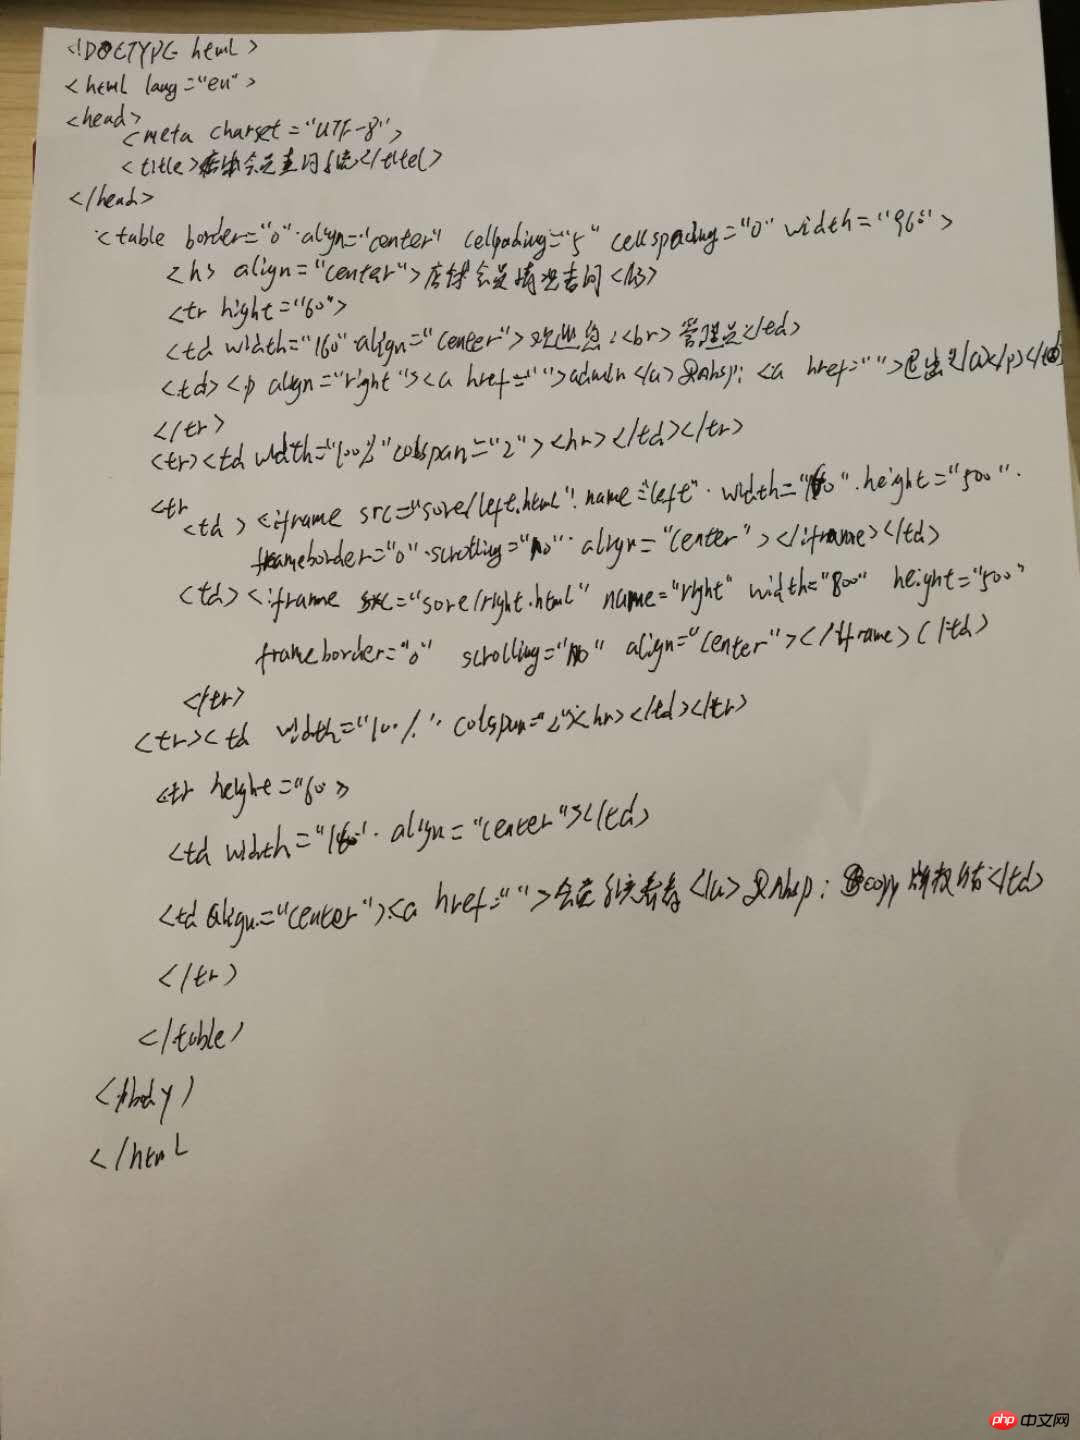 <!DOCTYPE html>
<html lang="en">
<head>
<meta charset="UTF-8">
<title>店铺会员查询系统</titel>
</head>
<table border="0" align="center" cellpading="5" cellspacing="0" width="960">
<h3 align="center">店铺会员情况查询<h3>
<tr hight="60">
<td width="160" align="center">欢迎您: 管理员</td>
<td><p align="right"><a href="">admin</a>&nbsp; <a href="">退出</a></p></td>
</tr>
<tr><td width="100%" colspan="2"><hr></td></tr>
<tr
<td><iframe src="sore/left.html" name="left" width="160" height="500"
frameborder="0" scrolling="no" align="center"></iframe></td>
<td><iframe src="sore/right.html" name="right" width="800" height="500"
frameborder="0" scrolling="no" align="center"></iframe></td>
</tr>
<tr><td width="100%" colspan="2"><hr></td></tr>
<tr height="60>
<td width="160" align="center"></td>
<td align="center"><a href="">会员</a>&nbsp; &copy 版权所有</td>
</tr>
</table>
</body>
</html
php 中文网